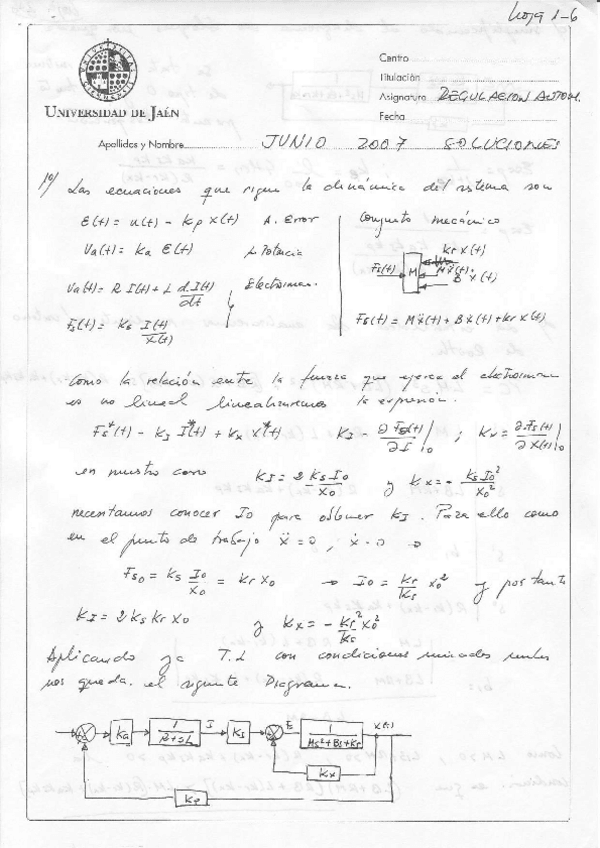 Hoja 1-6
Centro
Titulación
Asignatura REGULACION AUTOM.
Fecha
UNIVERSIDAD DE JAÉN
Apellidos y Nombre JUNIO 2007 SOLUCIONES
1º/ Las ecuaciones que rigen la dinámica del sistema son
E(t) = u(t) - Kp X(t) A. Error
Va(t) = Ka E(t) A. Potencia
Va(t) = R I(t) + L d.I(t)/dt Electroiman.
Fs(t) = Ks I(t)/X(t)
Conjunto mecánico
Kr X(t)
Fs(t) M MẌ(t)
B Ẋ(t)
Fs(t) = MẌ(t) + BẊ(t) + Kr X(t)
Como la relación entre la fuerza que ejerce el electroiman
es no lineal linealizaremos la expresión.
Fs*(t) - KI I*(t) + Kx X*(t) KI - ∂Fs(t)/∂I |0 ; Kx = ∂Fs(t)/∂X(t) |0
en nuestro caso KI = 2 Ks I0/X0 y Kx = - Ks I0²/X0²
necesitamos conocer I0 para obtener KI. Para ello como
en el punto de trabajo Ẍ = 0, Ẋ = 0 ⇒
Fs0 = Ks I0/X0 = Kr X0 → I0 = Kr/Ks X0² y por tanto
KI = 2 Ks Kr X0 y Kx = - Kr²/Ks X0²
Aplicando ya T.L con condiciones iniciales nulas
nos queda. el siguiente Diagrama.
Ka 1/R+sL I Ks E 1/Ms²+Bs+Kr X(t)
Kx
Kp